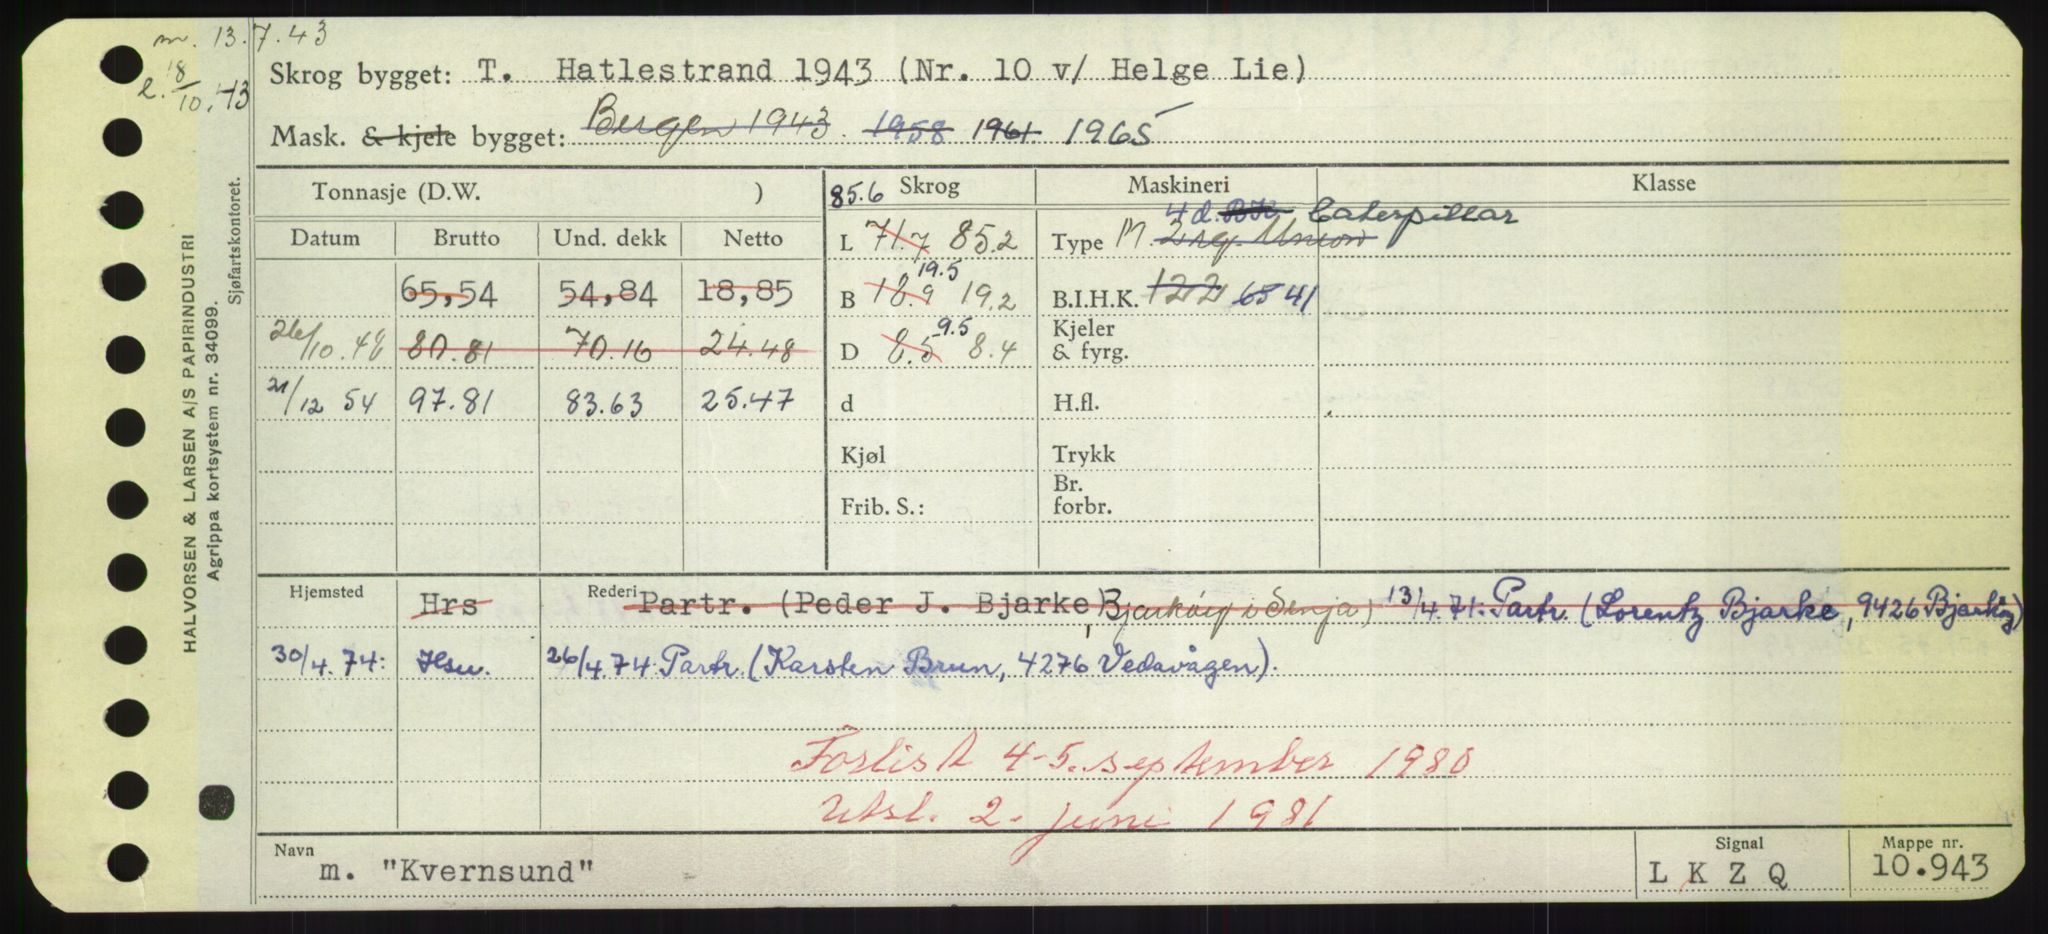 m. 13.7.43
l. 18/10.43
Skrog bygget: T. Hatlestrand 1943 (Nr. 10 v/ Helge Lie)
Mask. & kjele bygget: Bergen 1943. 1958 1961. 1965
Tonnasje (D.W. )
85.6 Skrog
Maskineri
Klasse
Datum Brutto Und. dekk Netto
L 71.7 85.2
Type M. 4 d. Caterpillar
Union
65,54 54,84 18,85
B 18.9 19.5 19.2
B.I.H.K. 122 65 41
26/10.48 80.81 70.16 24.48
D 8.5 9.5 8.4
Kjeler
& fyrg.
21/12 54 97.81 83.63 25.47
d
H.fl.
Kjøl
Trykk
Frib. S.:
Br.
forbr.
Hjemsted Hrs Rederi Partr. (Peder J. Bjarke, Bjarkøy i Senja) 13/4.71: Partr. (Lorentz Bjarke, 9426 Bjarkøy)
30/4.74: Hsu. 26/4.74 Partr. (Karsten Brun, 4276 Vedavågen).
Forlist 4-5. september 1980
Utsl. 2. juni 1981
Navn m. "Kvernsund"
Signal L K Z Q
Mappe nr. 10.943
HALVORSEN & LARSEN A/S PAPIRINDUSTRI
Agrippa kortsystem nr. 34099.
Sjøfartskontoret.